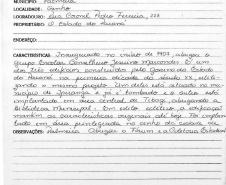 MUNICÍPIO: Palmeira
LOCALIDADE: Centro
LOGRADOURO: Rua Coronel Pedro Ferreira,
PROPRIETÁRIO: O Estado do Paraná
ENDEREÇO:
CARACTERÍSTICAS: Inaugurado no início de 1907, abrigou o
Grupo Escolar Conselheiro Jesuíno Marcondes. É um
dos três edifícios construídos pelo Governo do Estado
do Paraná na primeira década do século XX, utili-
zando o mesmo projeto. Um deles está situado no mu-
nicípio de Ipiranga e já é tombado e o outro está
implantado em área central de Tibagi, abrigando a
Biblioteca Municipal. Em estilo eclético, a edificação
mantém as características originais até hoje. Foi implan-
tado em área privilegiada no centro da cidade de
OBSERVAÇÕES: Palmeira. Abrigou o Fórum e a Coletoria Estadual